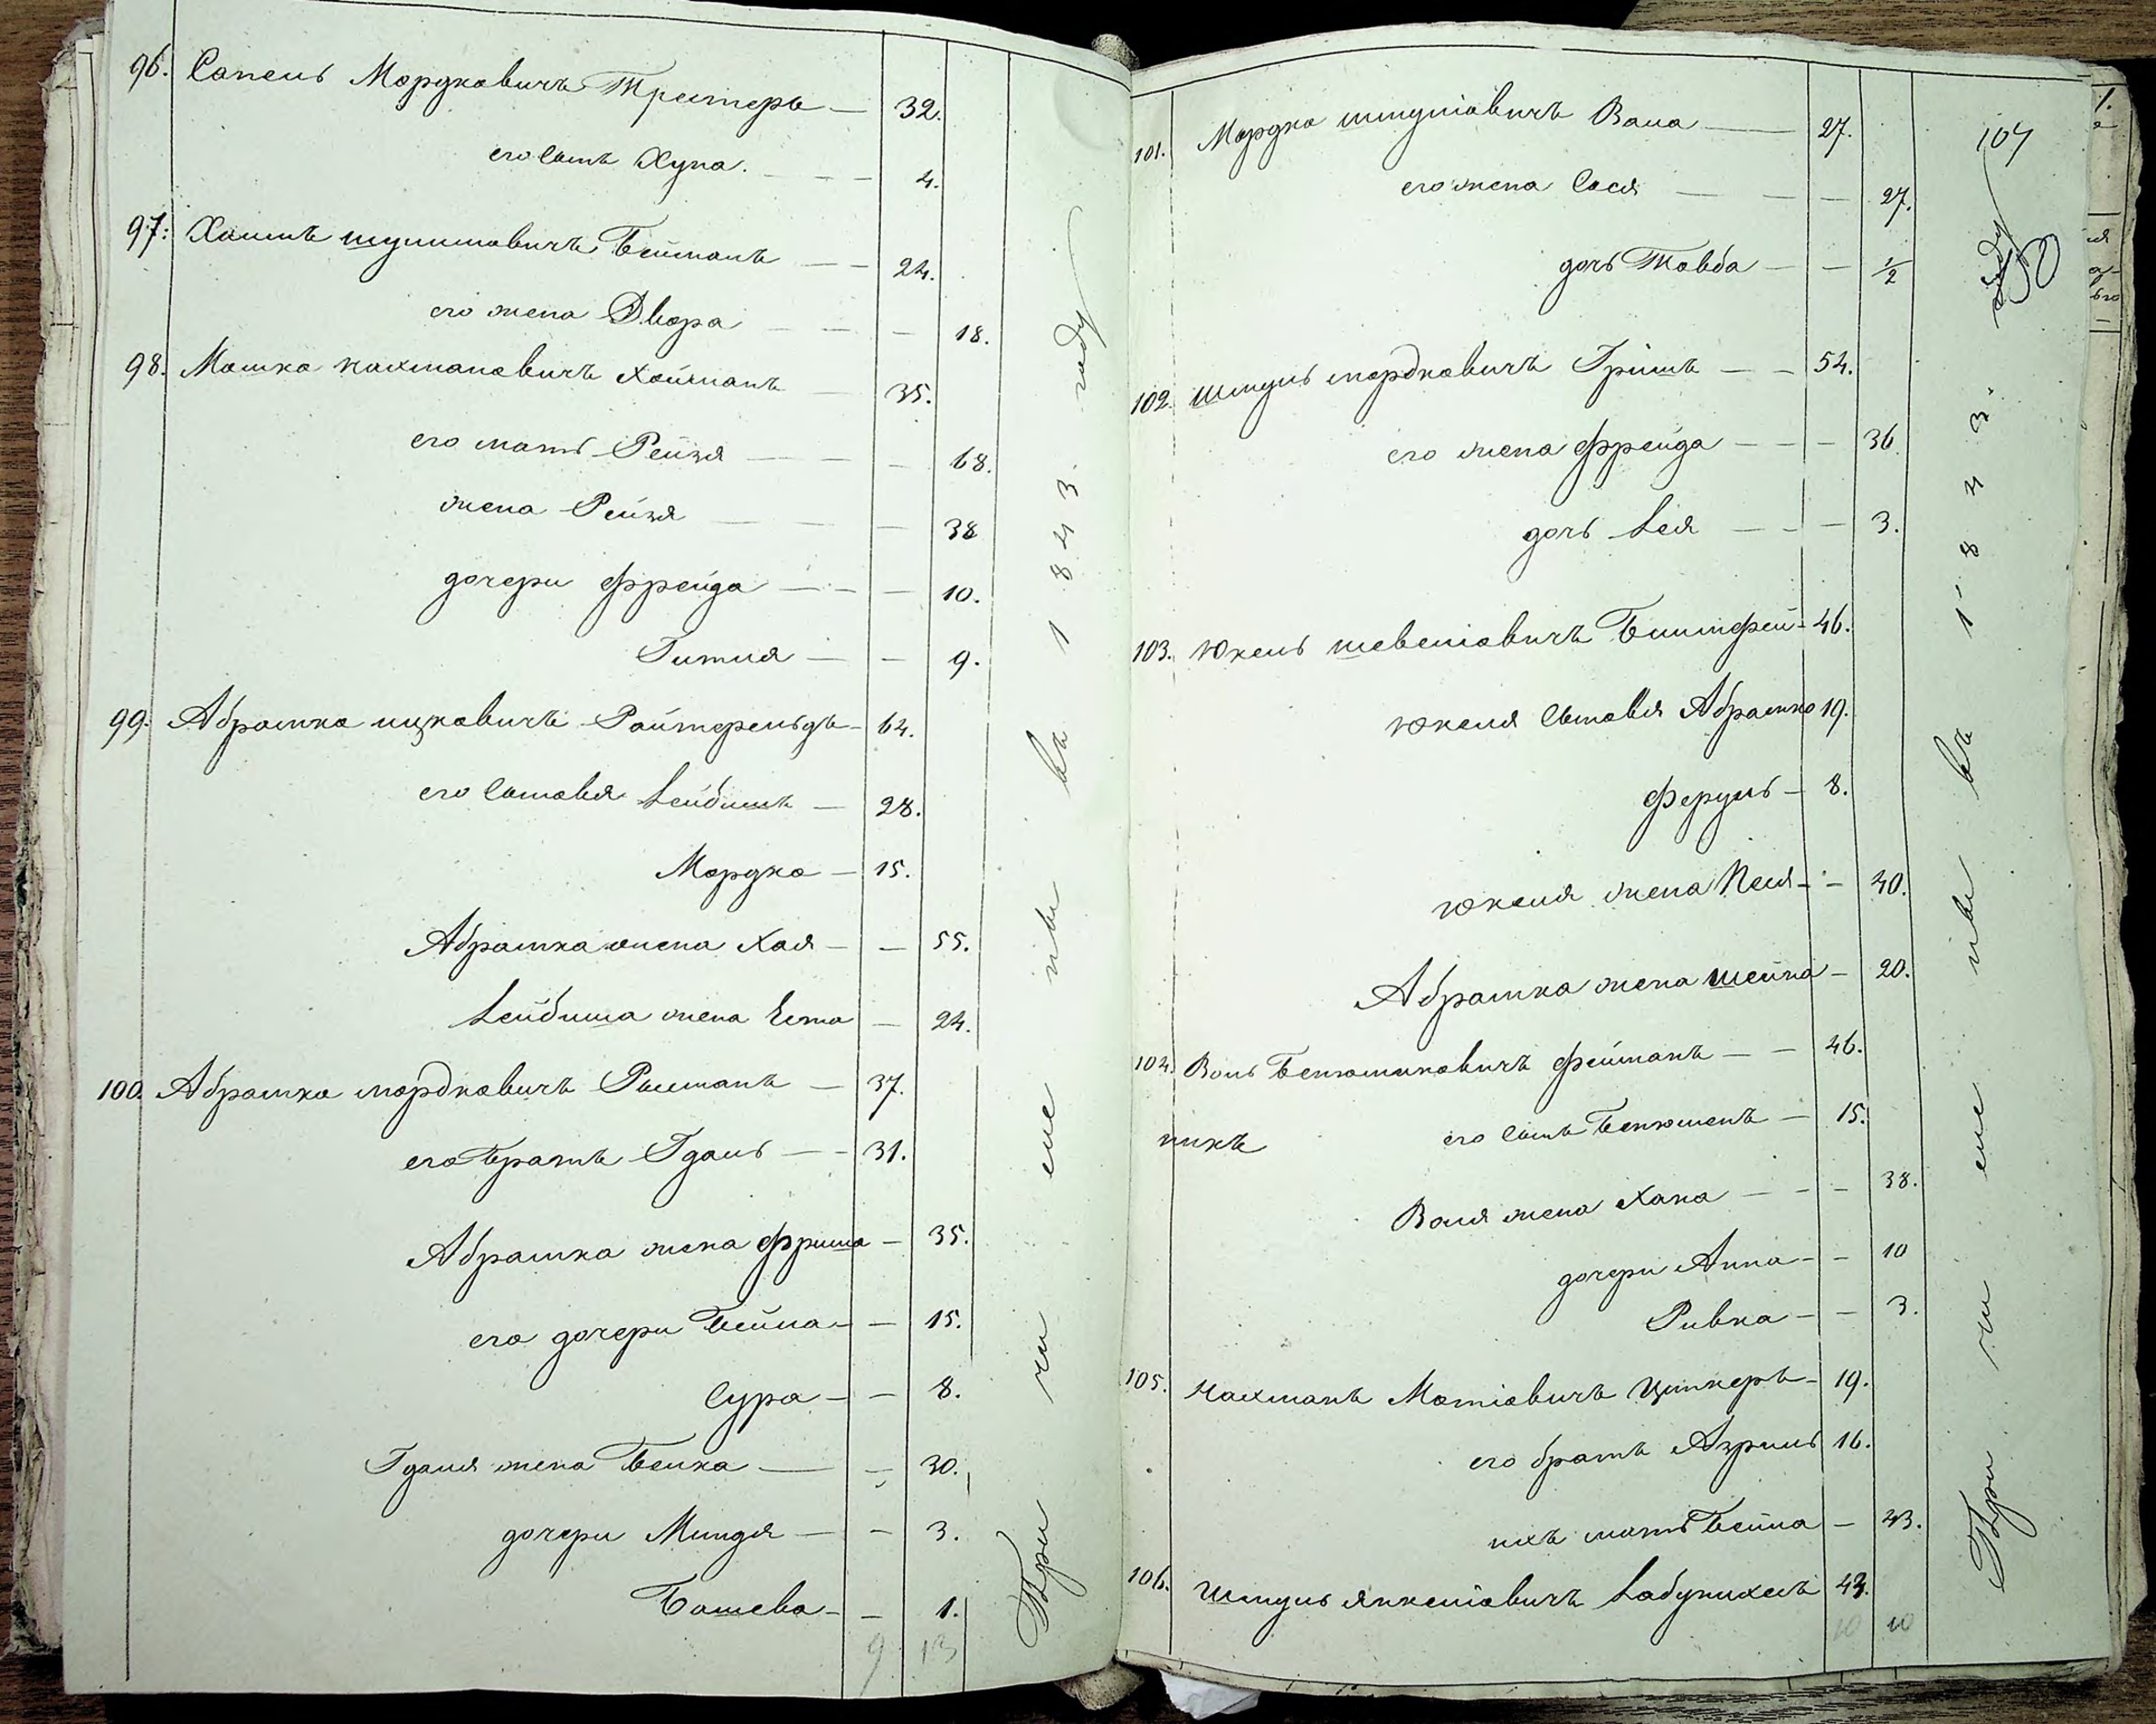 96. Сапель Мордковичъ Трейстеръ — 32.
его сынъ Хуна. — — — 4.
97. Хаимъ шулимовичъ Бейманъ — — 24.
его жена Двора — — — 18.
98. Мошко нахмановичъ Хойманъ — 35.
его мать Рейзя — — — 68.
жена Рейзя — — — 38
дочери Фрейда — — — 10.
Гитля — — 9.
99. Абрамко ицковичъ Райтфельдъ — 64.
его сыновья Лейбишъ — 28.
Мордко — 15.
Абрамка жена Хая — — 55.
Лейбиша жена Ента — 24.
100. Абрамко мордковичъ Рытманъ — 37.
его братъ Гдаль — — 31.
Абрамка жена Фрима — 35.
его дочери Бейла — — 15.
Сура — — 8.
Гдаля жена Бейла — — 30.
дочери Миндя — — 3.
Башева — — 1.
9. 13
При чи сле ны въ 1 8 4 3 году
107
50
101. Мордко шмулiовичъ Вала — 27.
его жена Сося — — — 27.
дочь Товба — — 1/2
102. Шмуль мордковичъ Грiшъ — — 54.
его жена Фрейда — — — 36.
дочь Лея — — — 3.
103. Юкель шевелiовичъ Блитфей — 46.
Юкеля сыновья Абрамко 19.
Фердль — 8.
Юкеля жена Песя — — 40.
Абрамка жена шейна — 20.
104. Воль Бенюминовичъ Фейманъ — — 46.
никъ его сынъ Бенюменъ — 15.
Воля жена Хана — — — 38.
дочери Анна — — 10
Ривка — — 3.
105. Нахманъ Мотiовичъ Цинкеръ — 19.
его братъ Азриль 16.
ихъ мать Бейла — 43.
106. Шмуль янкелiовичъ Лабунихесъ 43.
10 10
При чи сле ны въ 1 8 4 3 году